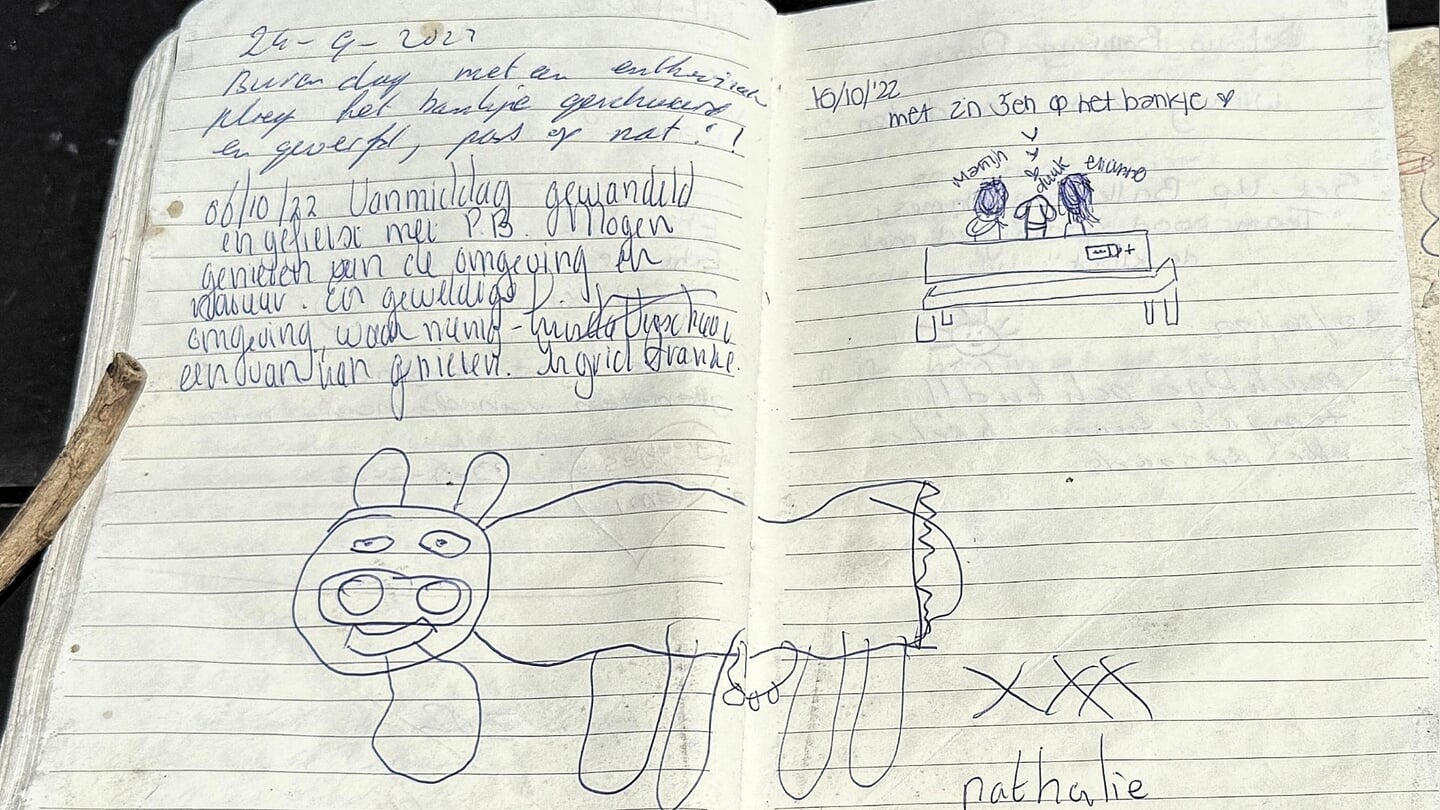 24-9-2022
Burendag met een enthousiaste
ploeg het bankje geschuurd
en geverfd, pas op nat!!
06/10/22 Vanmiddag gewandeld
en gefietst met P.B. Mogen
genieten van de omgeving en
natuur. En geweldige
omgeving waar
een van kan genieten. Ingrid Franke.
10/10/'22
met z'n 3en op het bankje ♡
Marijn
duuk
nathalie